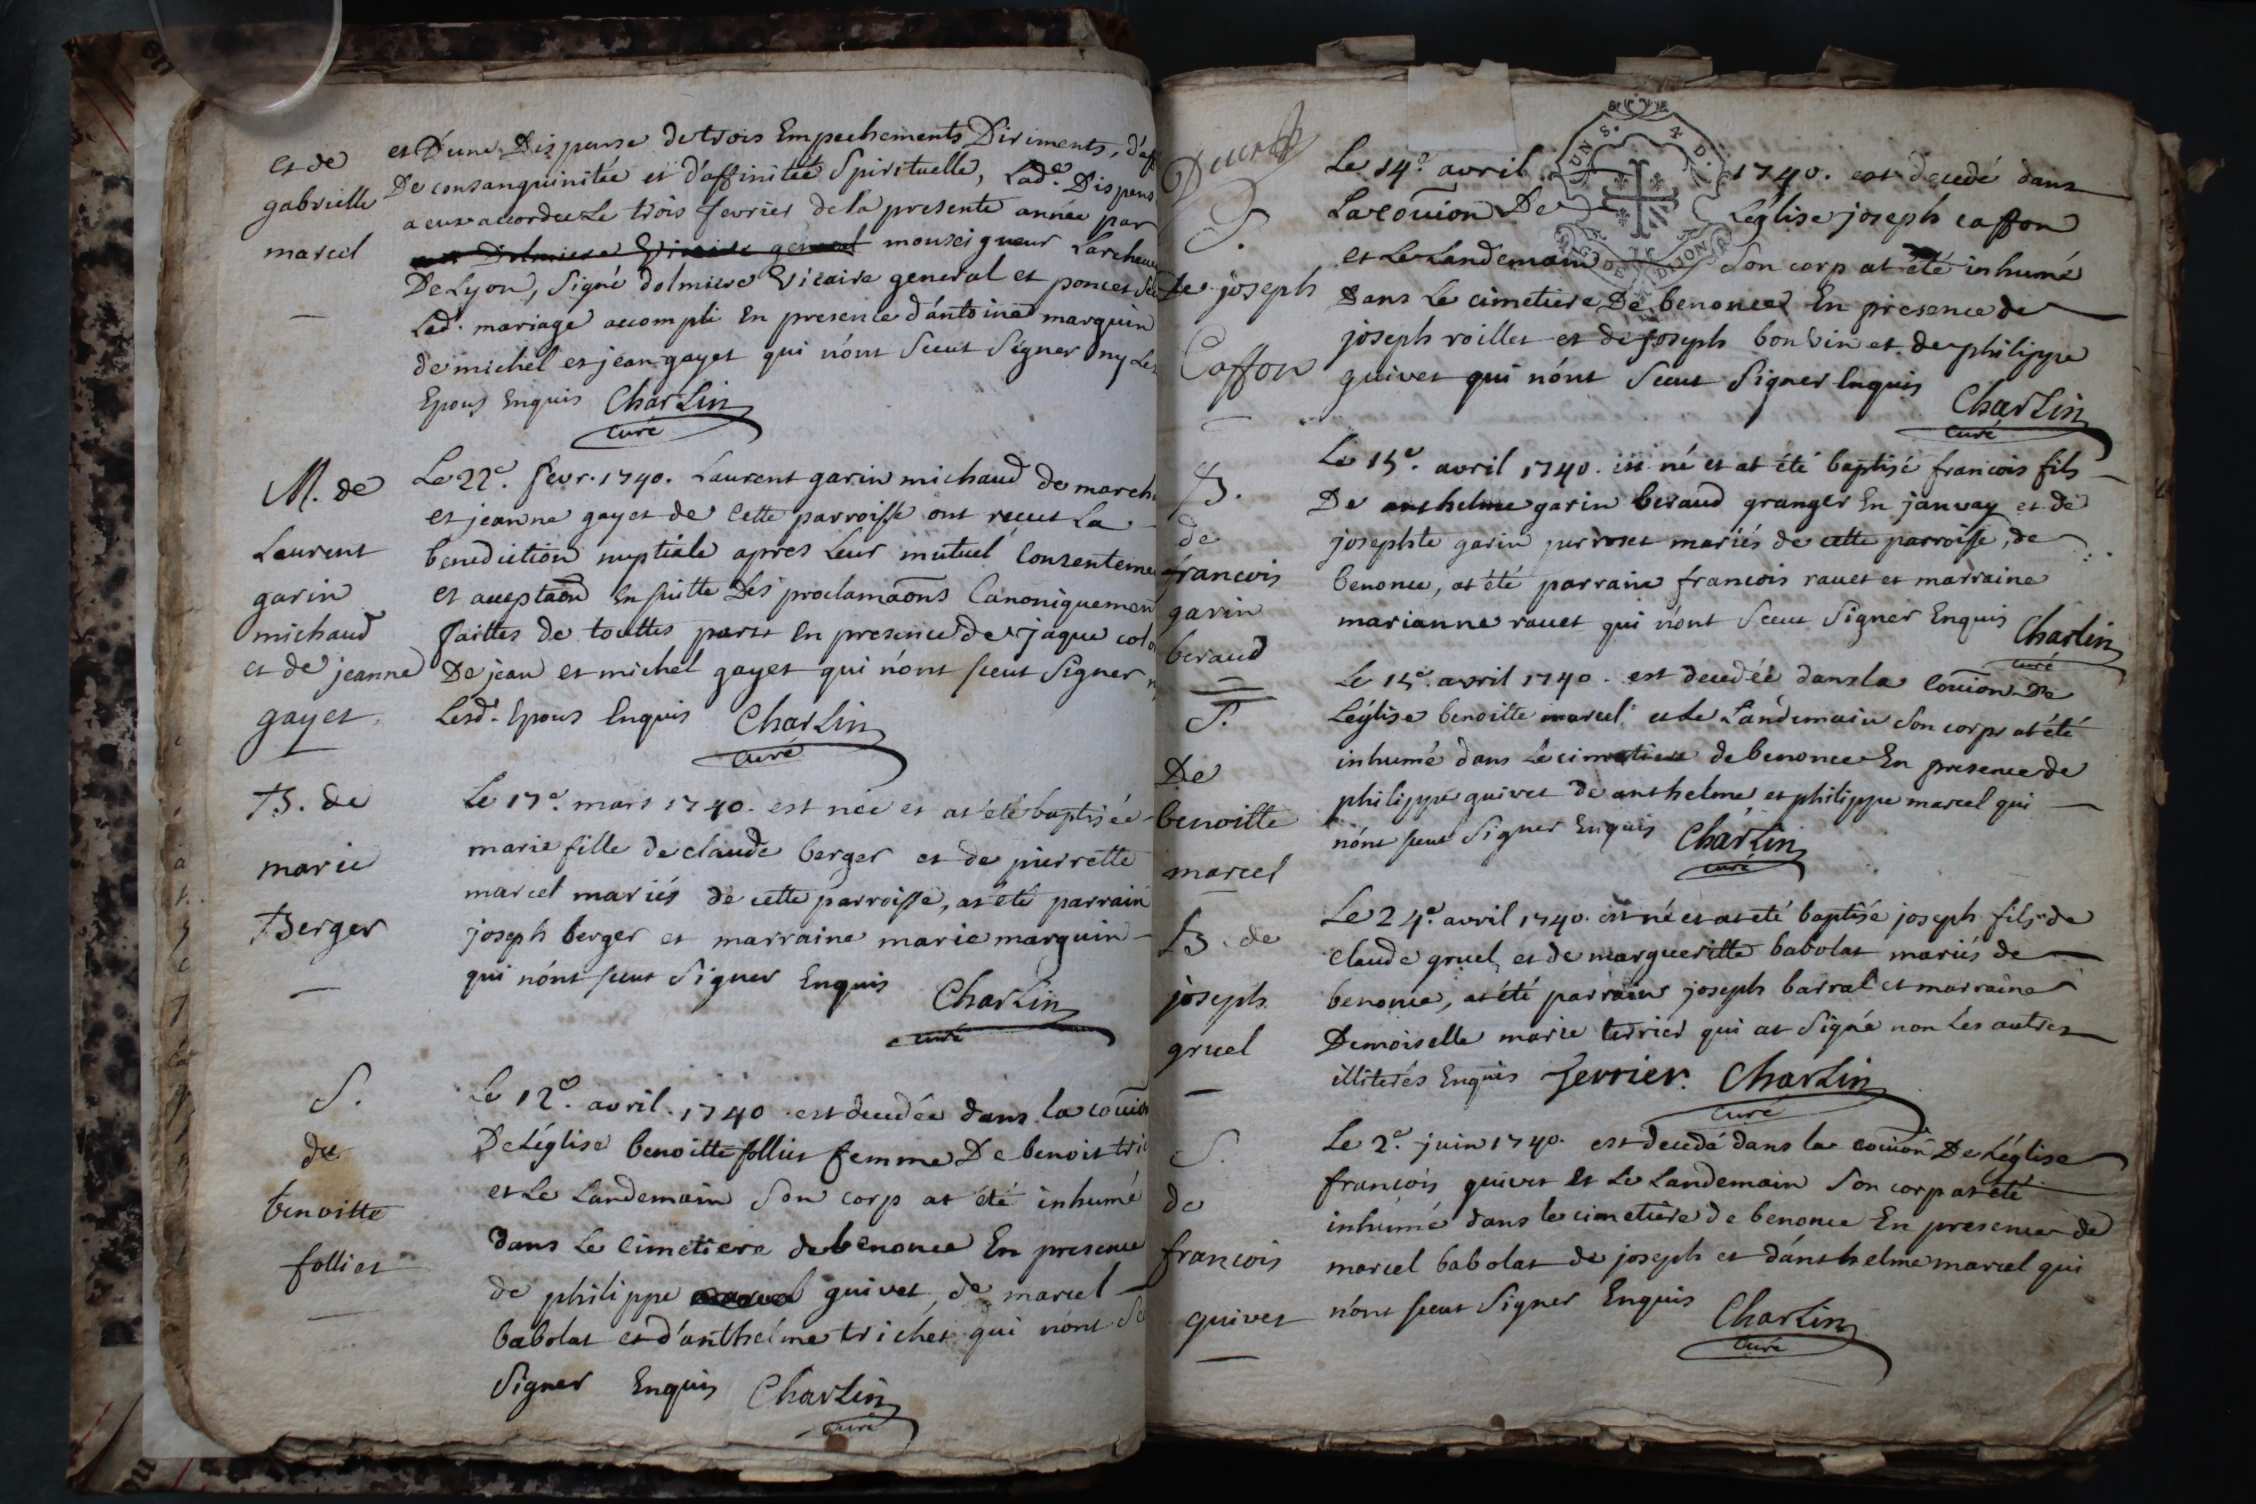 et de
gabrielle
marcel
et D'une Dispense de trois Empechements Diriments, d'aff
De consanguinitée et d'affinitée Spirituelle, Lad.e Dispens
a eux accordée Le trois fevrier de la presente année par
monseigneur Larcheve
De Lyon, Signé dolmiere Vicaire general et poncet Sec
Led. mariage accompli En presence d'antoine marquin
de michel et jean gayet qui n'ont Sceut Signer ny Les
Epous Enquis Charlin
curé
M. de
Laurent
garin
michaud
et de jeanne
gayet
Le 22.e fevr. 1740. Laurent garin michaud de march
et jeanne gayet de Cette parroisse ont receut La
benediction nuptiale apres Leur mutuel Consenteme
et acceptaon En suitte Des proclamaons Canoniquemen
faittes de touttes parts En presence de jaque colo
De jean et michel gayet qui n'ont sceut Signer n
Lesd. Epous Enquis Charlin
curé
B. de
marie
Berger
Le 17.e mars 1740. est née et at été baptisée
marie fille de claude berger et de pierrette
marcel mariés de cette parroisse, at été parrain
joseph berger et marraine marie marquin
qui n'ont sceut Signer Enquis Charlin
curé
S.
de
benoitte
folliet
Le 12.e avril. 1740. est decedée dans la couion
De Léglise benoitte folliet femme De benoit tri
et Le Landemain Son corp at été inhumé
dans Le Cimetiere de benonce En presence
de philippe quivet, de marcel
babolat et d'anthelme trichet qui n'ont Sc
Signer Enquis Charlin
curé
S.
De joseph
Caffon
Le 14.e avril 1740. est decedé dans
La couion De Léglise joseph caffon
et Le Landemain Son corp at été inhumé
Dans Le cimetiere De benonce En presence de
joseph roillet et de joseph bonvin et de philippe
quivet qui n'ont Sceut Signer Enquis
Charlin
curé
UNS. 4 D.
DIJON
B.
de
francois
garin
beraud
Le 15.e avril 1740. est né et at été baptisé francois fils
De anthelme garin beraud granger En janvay et de
josephte garin perroset mariés de cette parroisse, de
benonce, at été parrain francois ravet et marraine
marianne ravet qui n'ont Sceut Signer Enquis Charlin
curé
S.
De
benoitte
marcel
Le 15.e avril 1740. est decedée dans la Couion De
Léglise benoitte marcel et Le Landemain Son corps at été
inhumé dans Le cimetiere de benonce En presence de
philippe quivet De anthelme et philippe marcel qui
n'ont sceut Signer Enquis Charlin
curé
B. de
joseph
gruel
Le 24.e avril 1740. est né et at été baptisé joseph fils de
Claude gruel, et de margueritte babolat mariés de
benonce, at été parrain joseph barral et marraine
Demoiselle marie terrier qui at Signé non Les autres
illiterés Enquis Terrier. Charlin
curé
S.
de
francois
quivet
Le 2.e juin 1740. est decedé dans la couion De Léglise
francois quivet et Le Landemain Son corp at été
inhumé dans le cimetiere de benonce En presence de
marcel babolat de joseph et d'anthelme marcel qui
n'ont sceut Signer Enquis Charlin
curé